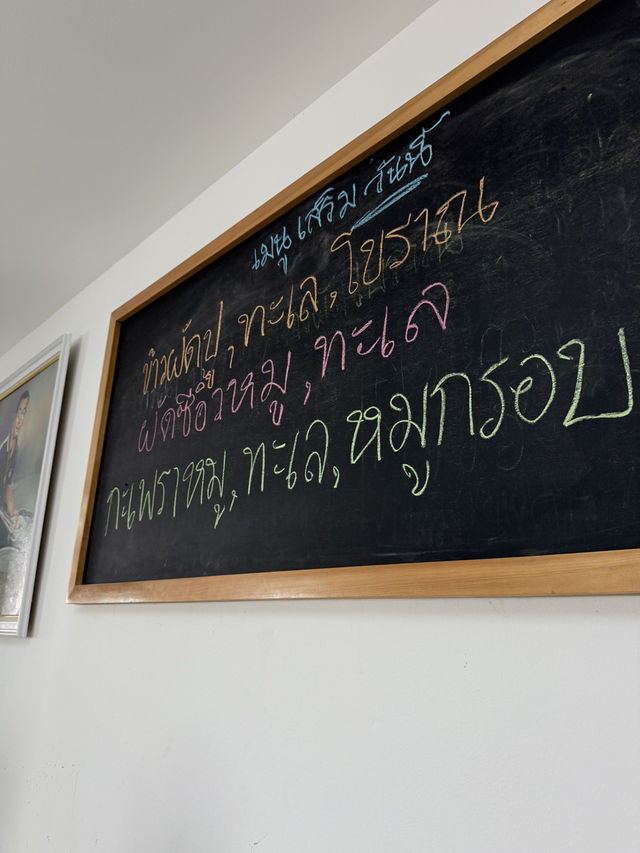 เมนู เสริม วันนี้
ข้าวผัดปู, ทะเล, โบราณ
ผัดซีอิ๊วหมู, ทะเล
กะเพราหมู, ทะเล, หมูกรอบ